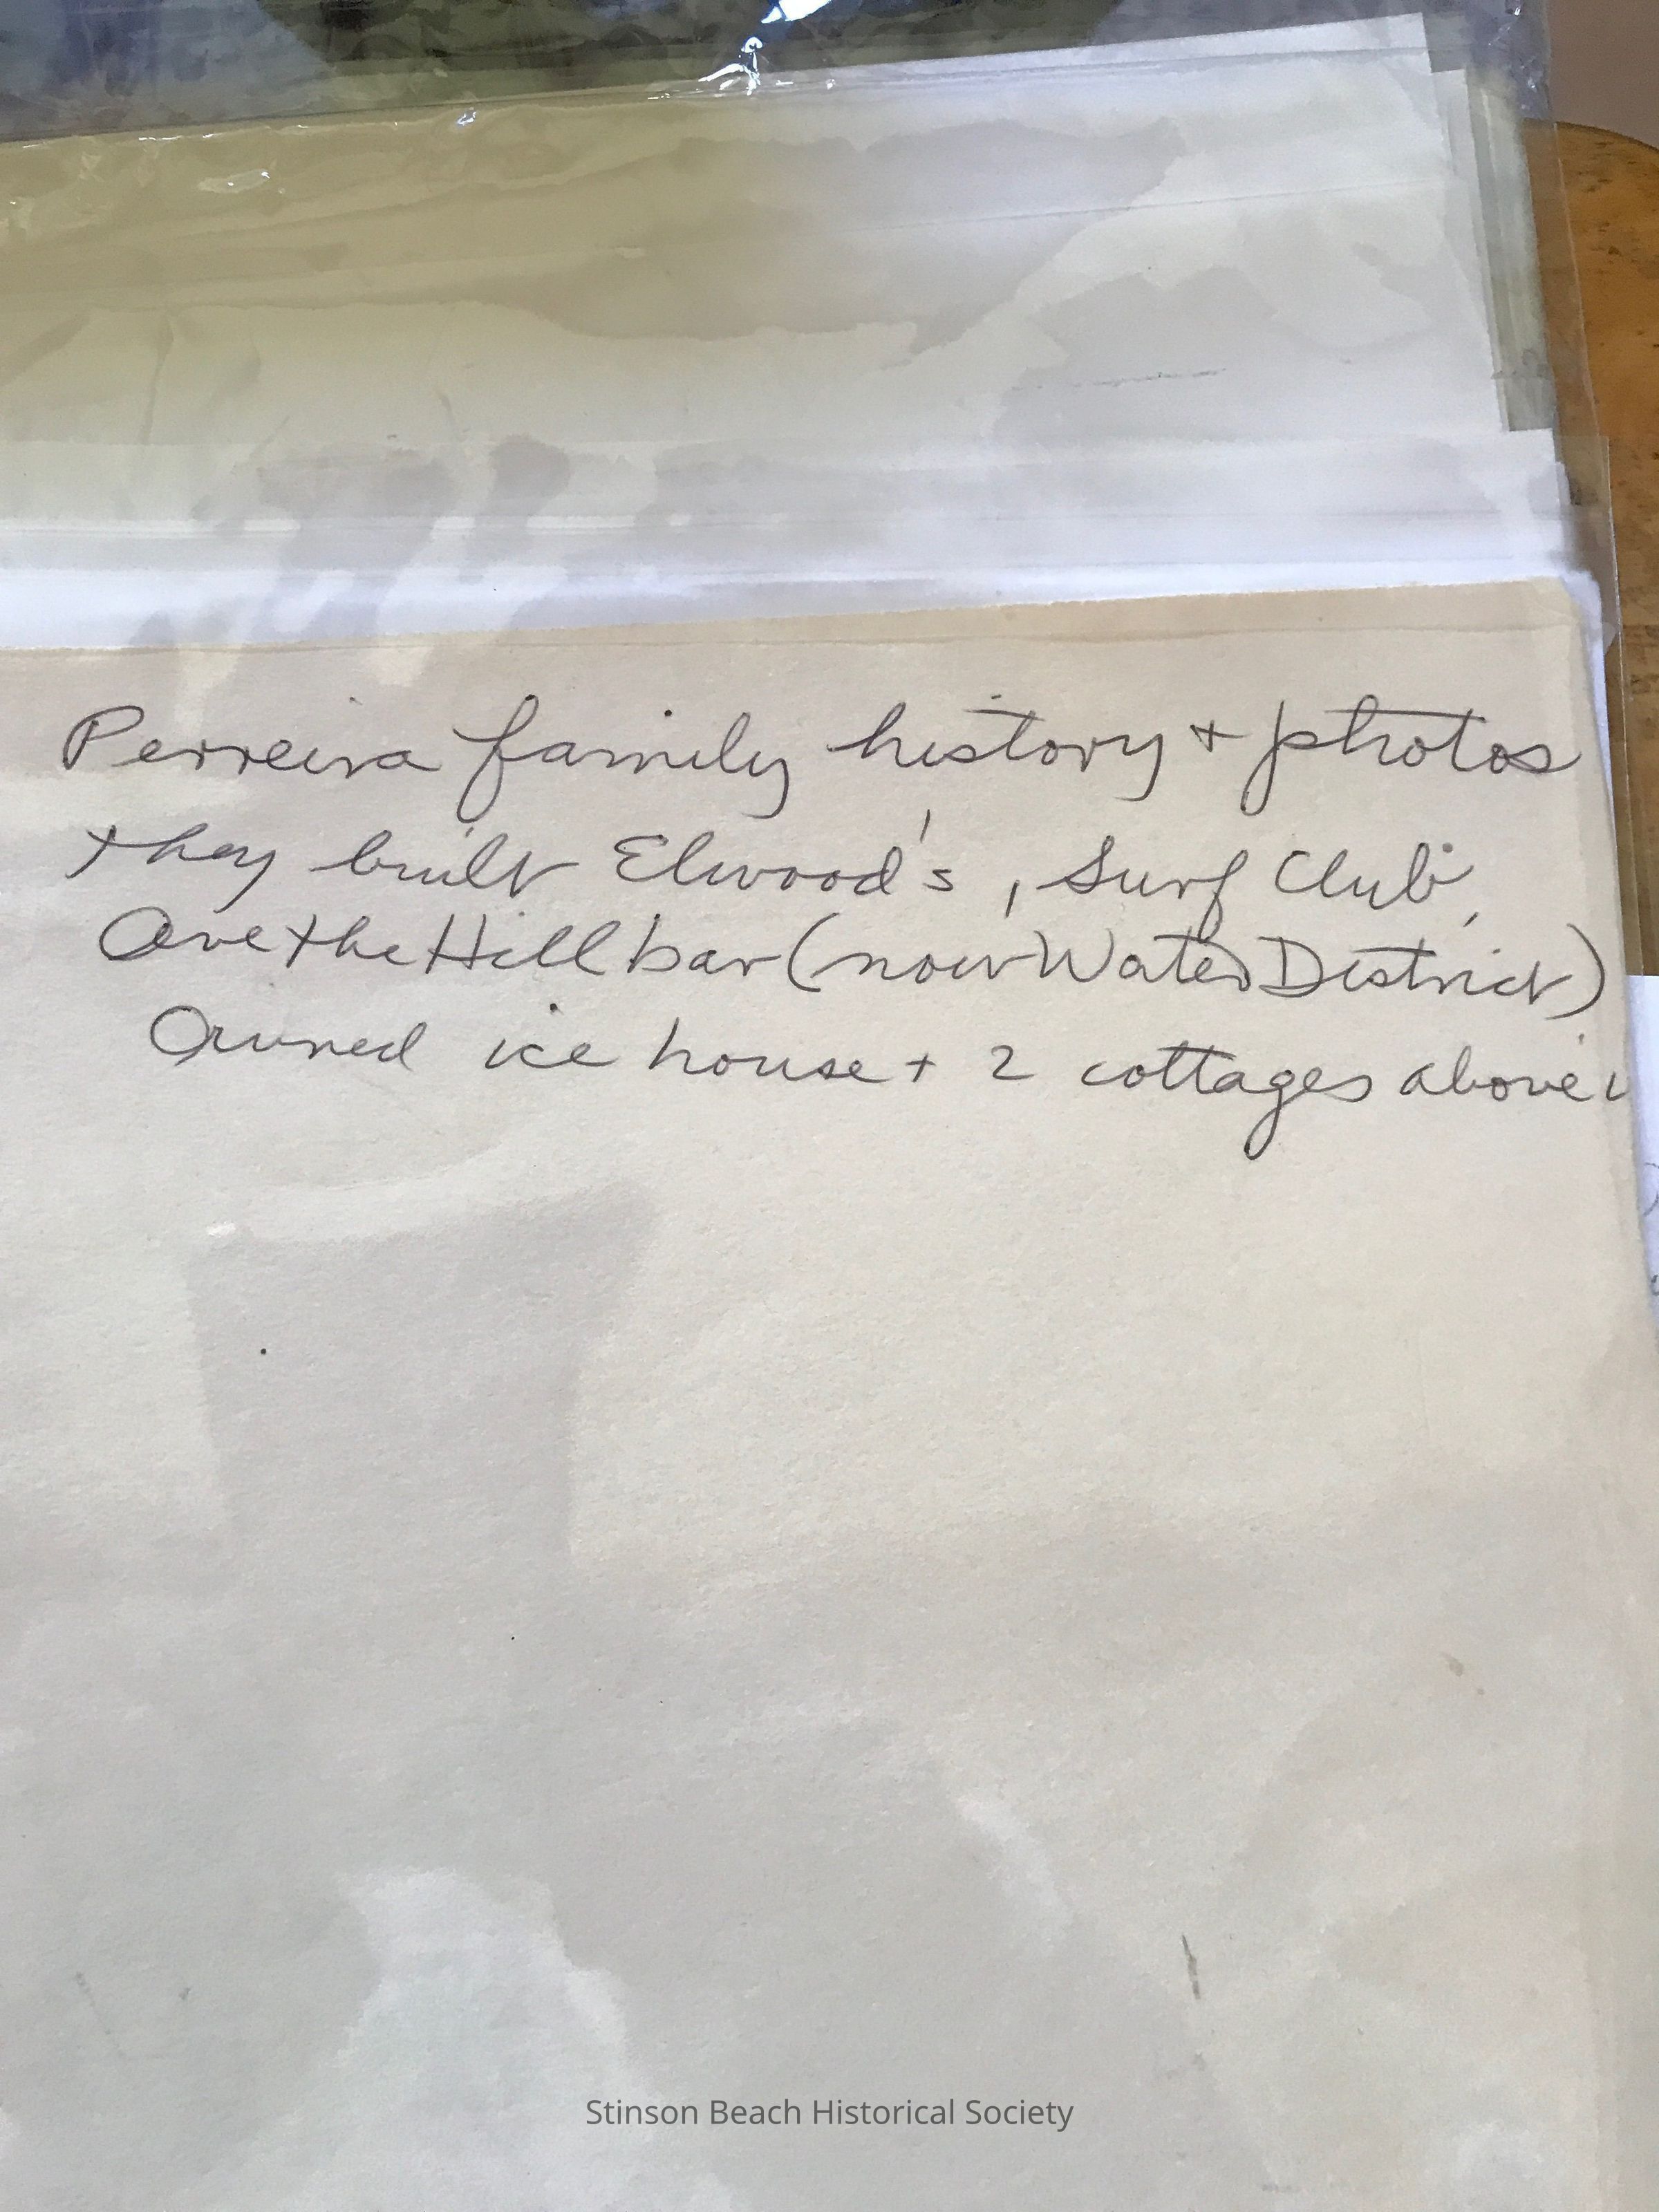 Perreira family history + photos
they built Elwood's, Surf Club,
Over the Hill bar (now Water District)
Owned ice house + 2 cottages above i
Stinson Beach Historical Society